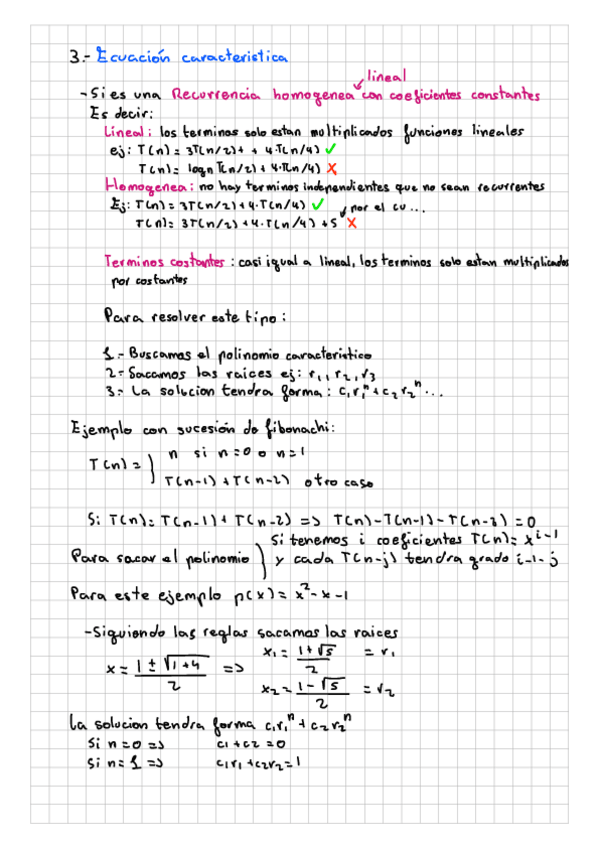 3.- Ecuación caracteristica
lineal
- Si es una Recurrencia homogenea con coeficientes constantes
Es decir:
Lineal: los terminos solo estan multiplicados funciones lineales
ej: T(n) = 3T(n/2) + + 4·T(n/4) ✓
T(n) = logn T(n/2) + 4·T(n/4) ✗
Homogenea: no hay terminos independientes que no sean recurrentes
Ej: T(n) = 3T(n/2) + 4·T(n/4) ✓ por el cu ...
T(n) = 3T(n/2) + 4·T(n/4) + 5 ✗
Terminos costantes: casi igual a lineal, los terminos solo estan multiplicados
por costantes
Para resolver este tipo:
1.- Buscamos el polinomio caracteristico
2.- Sacamos las raices ej: r₁, r₂, r₃
3.- La solucion tendra forma: c₁r₁ⁿ + c₂r₂ⁿ ...
Ejemplo con sucesión de fibonachi:
n si n=0 o n=1
T(n) =
T(n-1) + T(n-2) otro caso
Si T(n) = T(n-1) + T(n-2) => T(n) - T(n-1) - T(n-2) = 0
Si tenemos i coeficientes T(n) = x^i-1
Para sacar el polinomio y cada T(n-j) tendra grado i-1-j
Para este ejemplo p(x) = x² - x - 1
- Siguiendo las reglas sacamos las raices
x = 1 ± √1+4 / 2 => x₁ = 1+√5 / 2 = r₁
x₂ = 1-√5 / 2 = r₂
La solucion tendra forma c₁r₁ⁿ + c₂r₂ⁿ
Si n=0 => c₁ + c₂ = 0
Si n=1 => c₁r₁ + c₂r₂ = 1